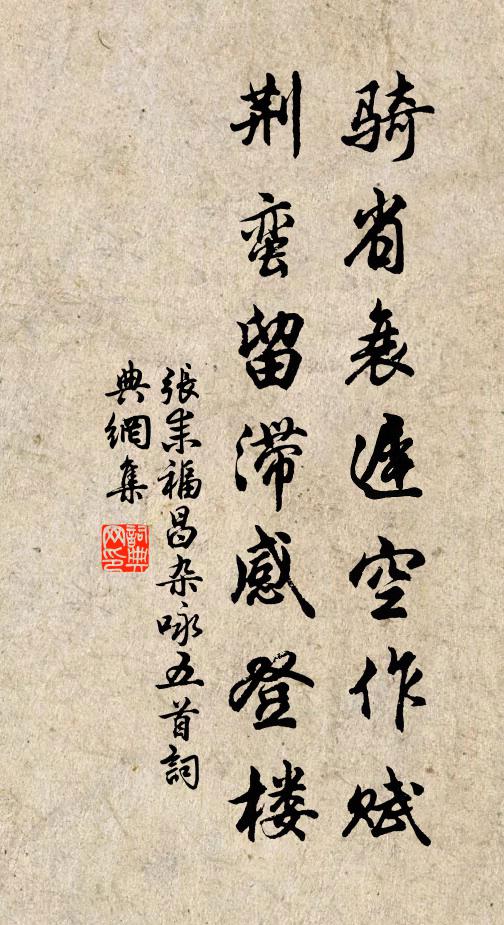 骑省衰迟空作赋
荆蛮留滞感登楼
張耒福昌杂咏五首詞
典網集
詞典
网印